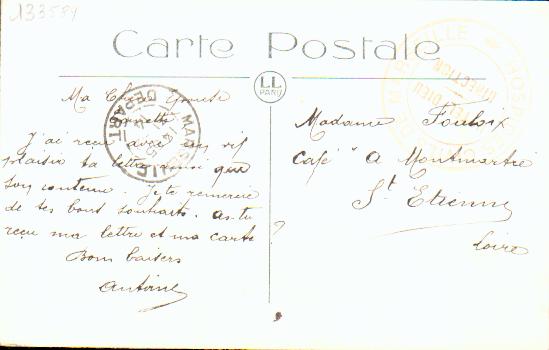 133584
Carte Postale
LL
PARIS
MARSEILLE
DEPART
Ma Chère
J'ai reçu avec un vif
plaisir ta lettre ainsi que
son contenu. Je te remercie
de tes bons souhaits. as-tu
reçu ma lettre et ma carte ?
Bons baisers
Antoine
Madame Fouloix
Café " A Montmartre
St Etienne
Loire